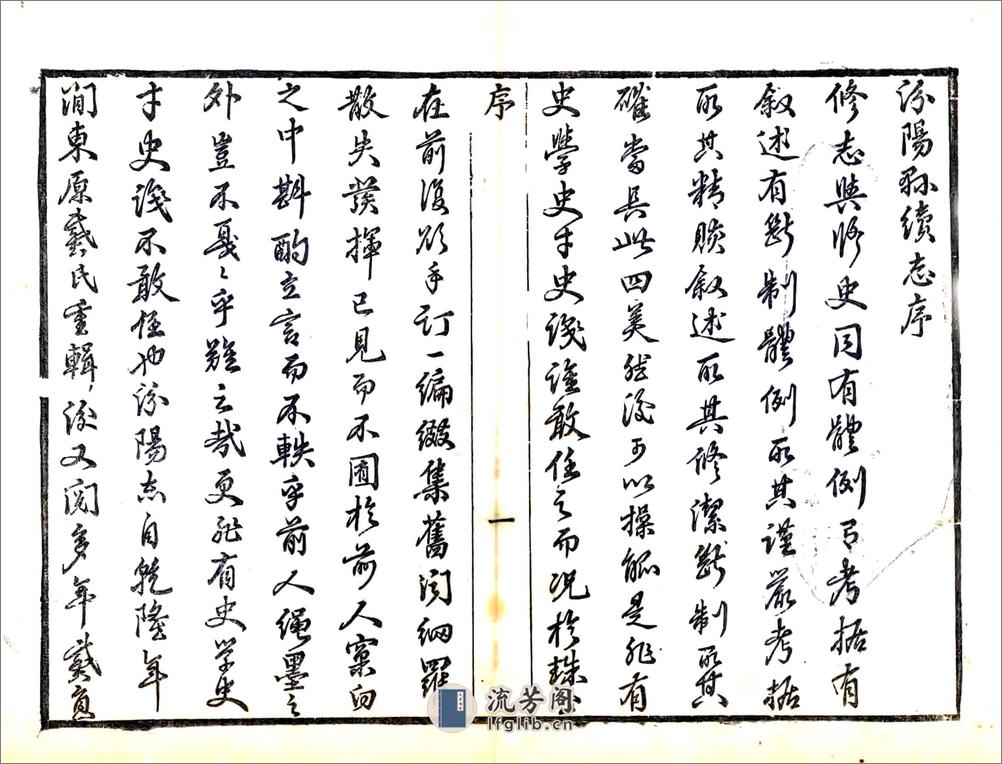 汾陽縣續志序
修志與修史同有體例有考据有
叙述有斷制體例取其謹嚴考据
取其精賅叙述取其修潔斷制取其
確當具此四美然後可以操觚是非有
史學史才史識誰敢任之而况於珠
序
一
在前後欲手訂一編綴集舊聞網羅
散失發揮己見而不囿於前人窠臼
之中斟酌立言而不軼乎前人繩墨之
外豈不戛戛乎難之哉更非有史學史
才史識不敢任也汾陽志自乾隆年
間東原戴氏重輯後又閱多年戴
流芳阁
lfglib.cn